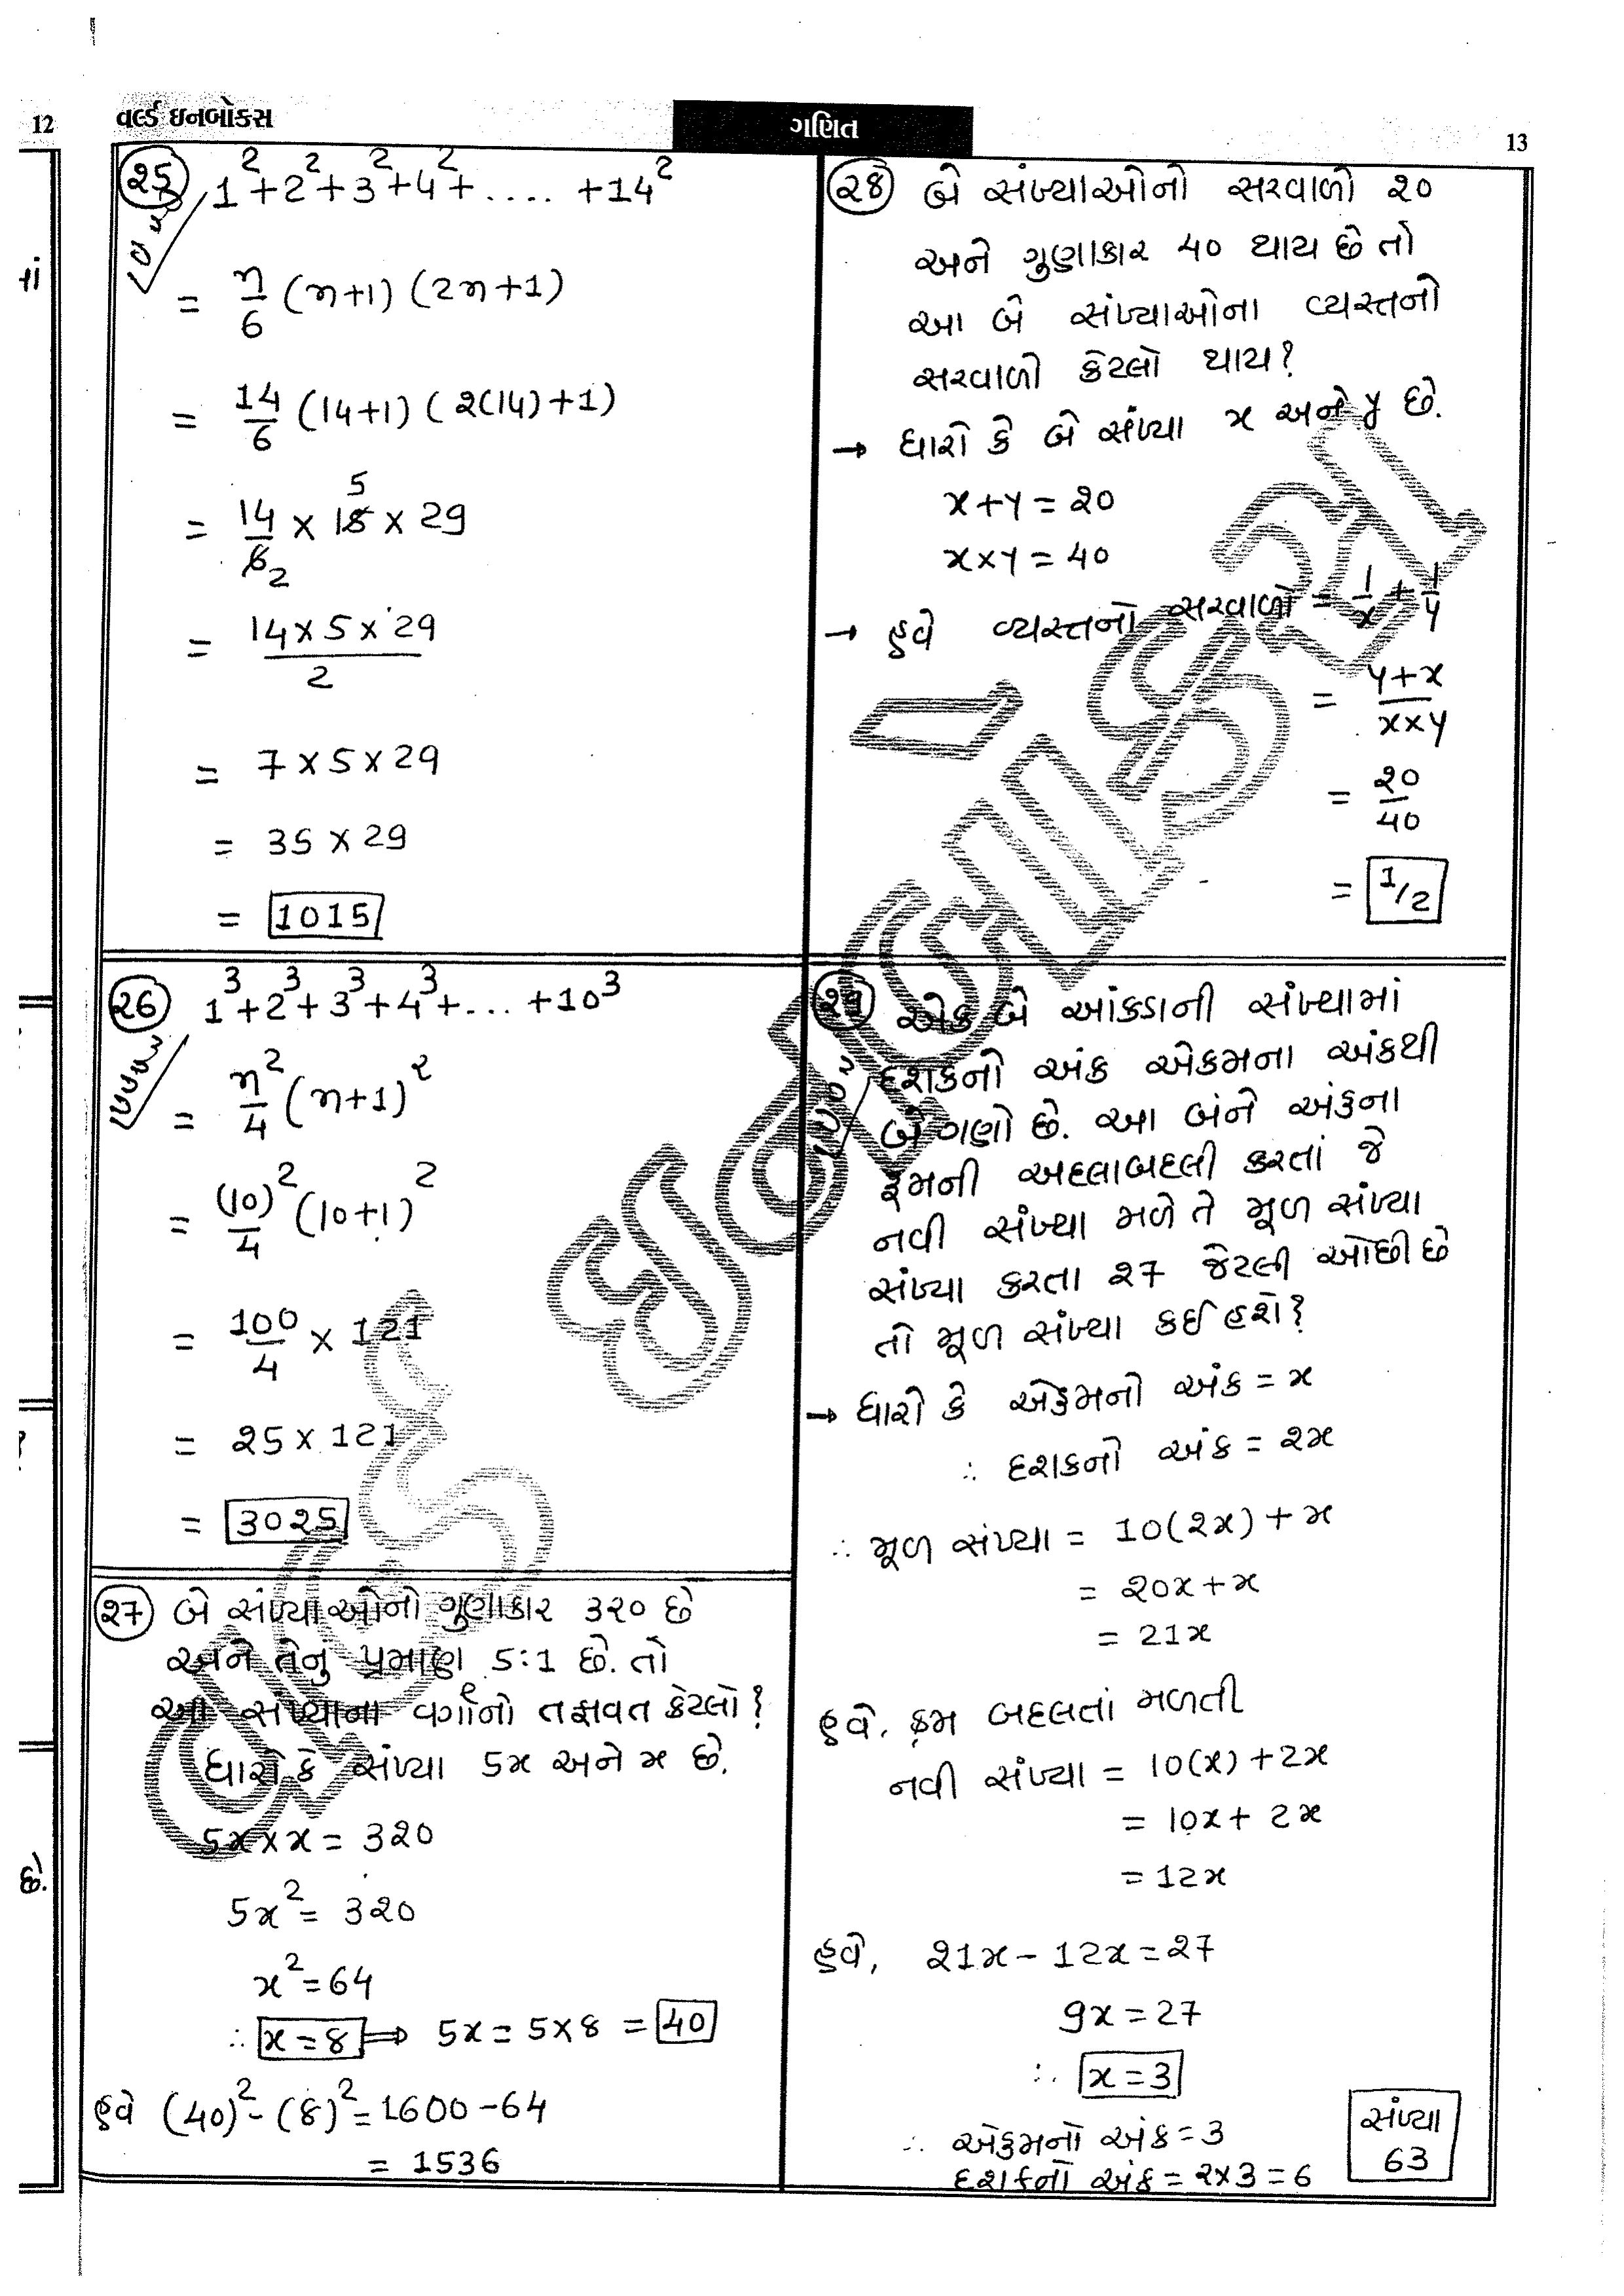 12
વર્લ્ડ ઇનબોક્સ
ગણિત
13
25 1²+2²+3²+4²+.... +14²
= n/6 (n+1) (2n+1)
= 14/6 (14+1) (2(14)+1)
= 14/6 2 × 15 5 × 29
= 14×5×29/2
= 7×5×29
= 35×29
= 1015
26 1³+2³+3³+4³+... +10³
= n²/4 (n+1)²
= (10)²/4 (10+1)²
= 100/4 × 121
= 25×121
= 3025
27 બે સંખ્યાઓનો ગુણાકાર 320 છે
અને તેનું પ્રમાણ 5:1 છે. તો
આ સંખ્યાના વર્ગોનો તફાવત કેટલો?
ધારો કે સંખ્યા 5x અને x છે.
5x×x = 320
5x² = 320
x² = 64
∴ x = 8 ⇒ 5x = 5×8 = 40
હવે (40)² - (8)² = 1600-64
= 1536
28 બે સંખ્યાઓનો સરવાળો 20
અને ગુણાકાર 40 થાય છે તો
આ બે સંખ્યાઓના વ્યસ્તનો
સરવાળો કેટલો થાય?
→ ધારો કે બે સંખ્યા x અને y છે.
x+y = 20
x×y = 40
→ હવે વ્યસ્તનો સરવાળો = 1/x + 1/y
= y+x/x×y
= 20/40
= 1/2
29 એક બે આંકડાની સંખ્યામાં
દશકનો અંક એકમના અંકથી
બે ગણો છે. આ બંને અંકના
ક્રમની અદલાબદલી કરતાં જે
નવી સંખ્યા મળે તે મૂળ સંખ્યા
સંખ્યા કરતા 27 જેટલી ઓછી છે
તો મૂળ સંખ્યા કઈ હશે?
→ ધારો કે એકમનો અંક = x
∴ દશકનો અંક = 2x
∴ મૂળ સંખ્યા = 10(2x) + x
= 20x+x
= 21x
હવે, ક્રમ બદલતાં મળતી
નવી સંખ્યા = 10(x) + 2x
= 10x + 2x
= 12x
હવે, 21x - 12x = 27
9x = 27
∴ x = 3
∴ એકમનો અંક = 3
દશકનો અંક = 2×3 = 6
સંખ્યા
63
છે.